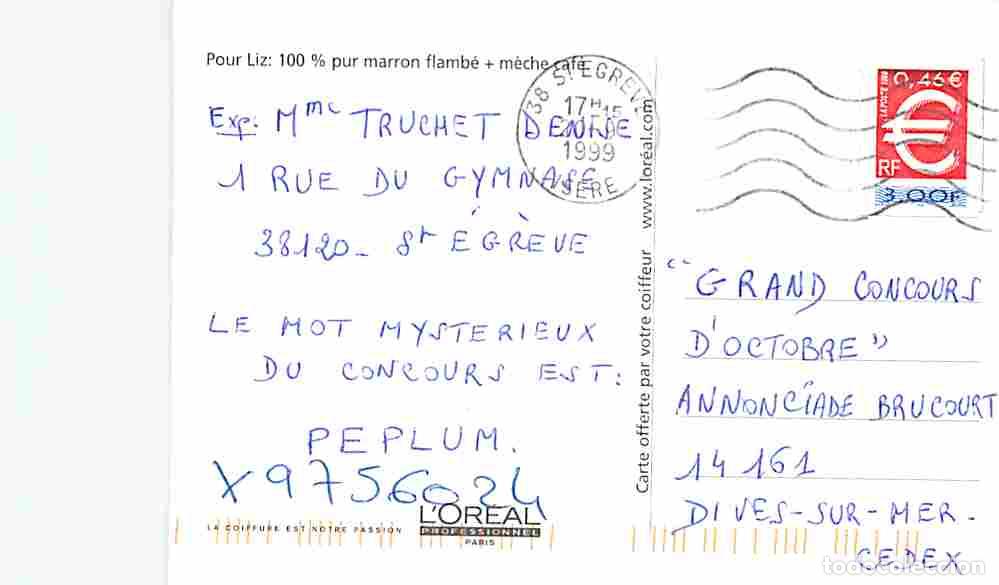 Pour Liz: 100 % pur marron flambé + mèche café
38 ST EGREVE
17H15
1999
ISERE
0,46 €
LA POSTE 1999
RF
3,00F
Exp: Mme TRUCHET DENISE
1 RUE DU GYMNASE
38120 - St ÉGRÈVE
LE MOT MYSTERIEUX
DU CONCOURS EST:
PEPLUM.
X9756024
LA COIFFURE EST NOTRE PASSION
L'ORÉAL
PROFESSIONNEL
PARIS
Carte offerte par votre coiffeur www.loréal.com
"GRAND CONCOURS
D'OCTOBRE"
ANNONCIADE BRUCOURT
14161
DIVES-SUR-MER-
CEDEX
todocoleccion